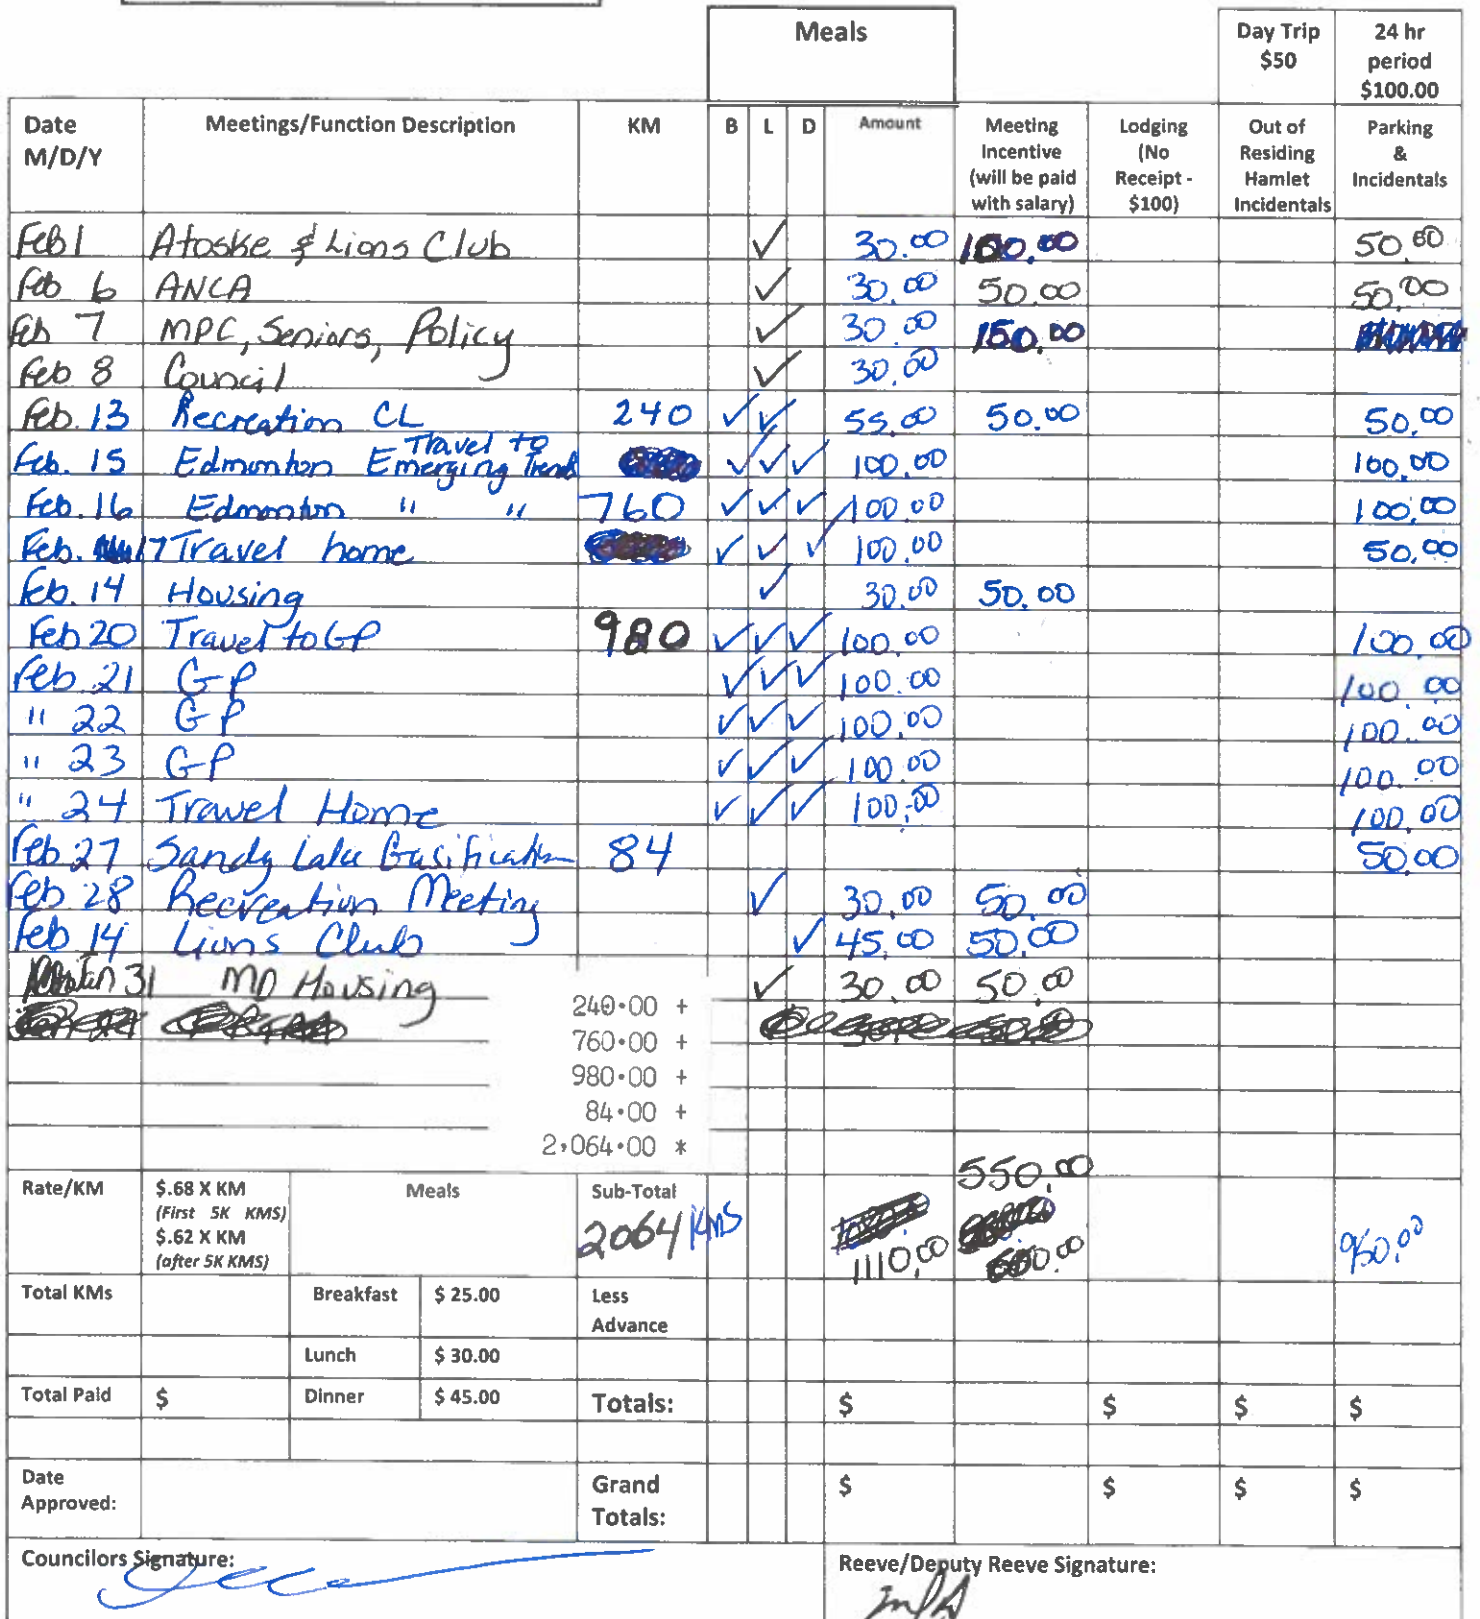 Meals
Day Trip $50
24 hr period $100.00
Date M/D/Y
Meetings/Function Description
KM
B L D
Amount
Meeting Incentive (will be paid with salary)
Lodging (No Receipt - $100)
Out of Residing Hamlet Incidentals
Parking & Incidentals
Feb 1 Atoske & Lions Club 30.00 100.00 50.00
Feb 6 ANCA 30.00 50.00 50.00
Feb 7 MPC, Seniors, Policy 30.00 150.00
Feb 8 Council 30.00
Feb. 13 Recreation CL 240 55.00 50.00 50.00
Feb. 15 Edmonton Travel to Emerging Trends 100.00 100.00
Feb. 16 Edmonton " " 760 100.00 100.00
Feb. 17 Travel home 100.00 50.00
Feb. 14 Housing 30.00 50.00
Feb 20 Travel to GP 980 100.00 100.00
Feb. 21 GP 100.00 100.00
" 22 GP 100.00 100.00
" 23 GP 100.00 100.00
" 24 Travel Home 100.00 100.00
Feb 27 Sandy Lake Gasification 84 50.00
Feb. 28 Recreation Meeting 30.00 50.00
Feb 14 Lions Club 45.00 50.00
Jan 31 MD Housing 30.00 50.00
240.00 +
760.00 +
980.00 +
84.00 +
2,064.00 *
550.00
Rate/KM
$.68 X KM
(First 5K KMS)
$.62 X KM
(after 5K KMS)
Meals
Sub-Total
2064 KMS 1110.00 600.00 950.00
Total KMs Breakfast $ 25.00 Less Advance
Lunch $ 30.00
Total Paid $ Dinner $ 45.00 Totals: $ $ $ $
Date Approved: Grand Totals: $ $ $ $
Councilors Signature:
Reeve/Deputy Reeve Signature: